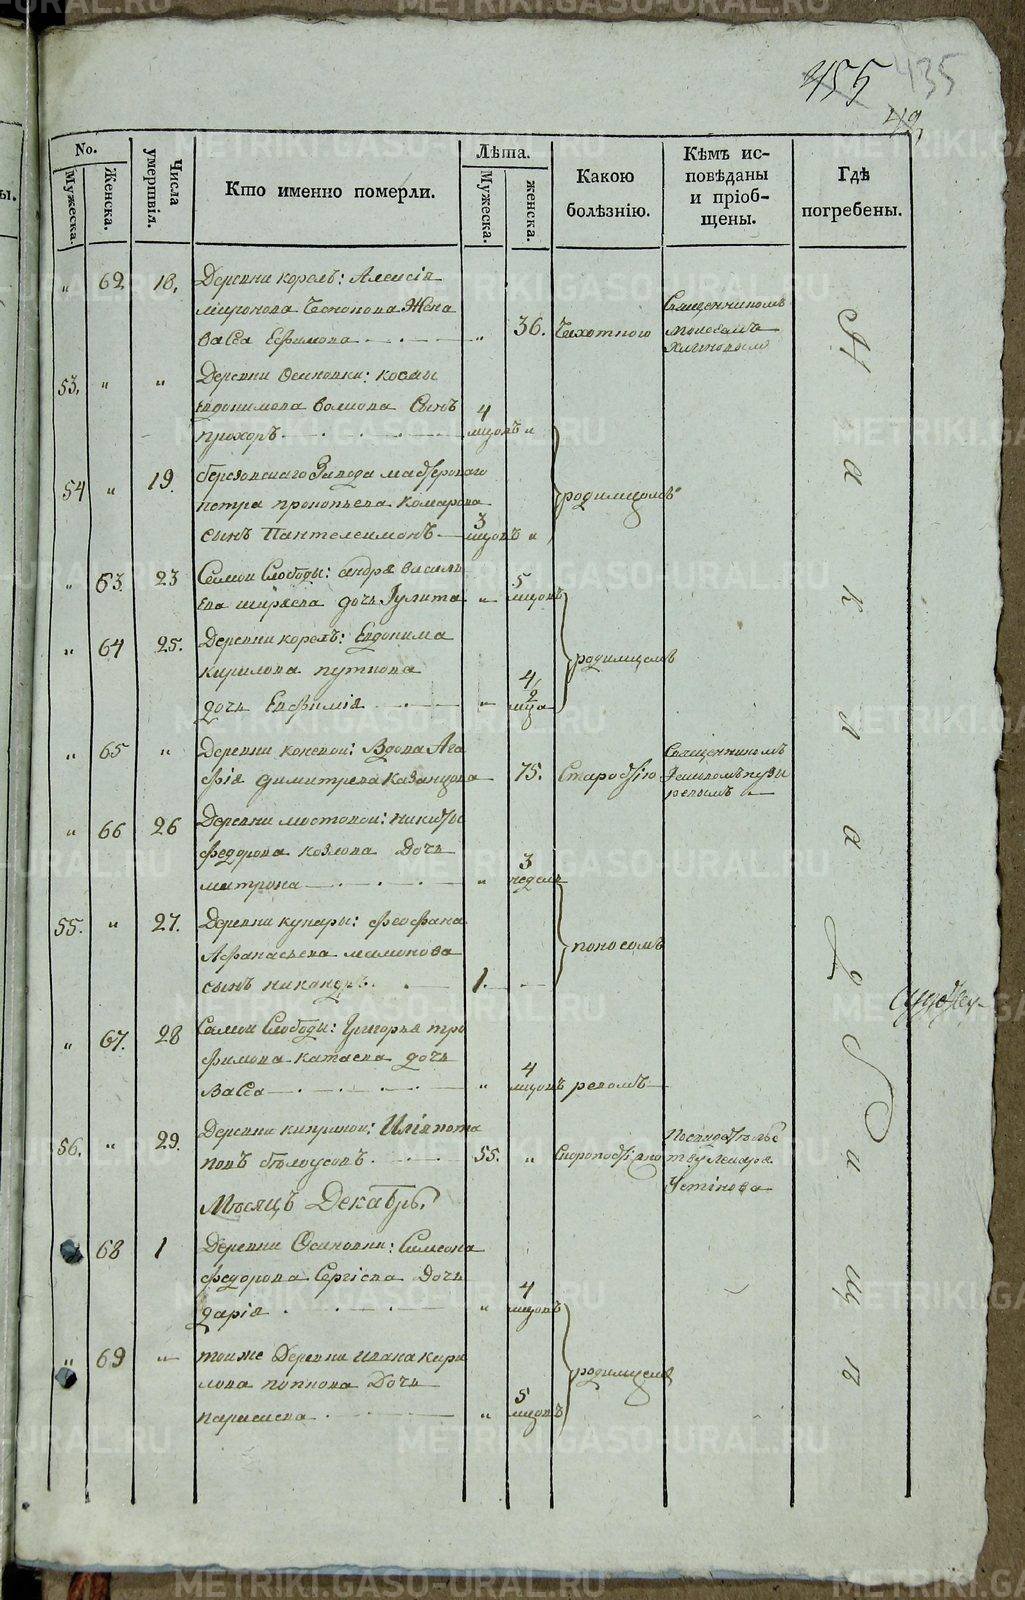 455 435
49
No.
Мужеска.
Женска.
Числа умертвія.
Кто именно померли.
Лѣта.
Мужеска.
женска.
Какою болѣзнію.
Кѣмъ исповѣданы и пріобщены.
Гдѣ погребены.
" 62 18, Деревни корелъ: Алексія
миронова Жена
васса Ефимова " 36. Чахоткою
Священникомъ
53, " " Деревни Осиновки: космы
Евдокимова волкова Сынъ
прохоръ 4 мцовъ "
54 " 19. березовскаго Завода мастероваго
петра прокопьева комарова
сынъ Пантелеимонъ 3 мцовъ "
родимцомъ
" 63. 23 Самои Слободы: андрея василь
ева ширяева дочь Іулита " 5 мцовъ
" 64 25. Деревни корелъ: Евдокима
кирилова путкова
дочь Евфимія " 4 2 мца
родимцемъ
" 65 " Деревни коневои: Вдова Ага
фія димитрева казанцова 75. Старостію
Священникомъ
" 66 26 Деревни мостовои: никиты
федорова козлова Дочь
матрона " 3 недель
55. " 27. Деревни кунары: феофана
Афанасьева мамонова
сынъ никандръ. 1.
поносомъ
" 67. 28 Самои Слободы: Григорья тро
фимова катаева дочь
васса " 4 мцовъ ревомъ
56. " 29. Деревни киприной: Илія пота
повъ бѣлоусовъ 55. " Скоропостіжно
Устінова
Мѣсяцъ Декабрь.
68 1 Деревни Осиновки: Симеона
федорова Сергіева Дочь
дарія " 4 мцовъ
" 69 " тоиже Деревни ивана кири
лова попкова Дочь
параскева " 5 мцовъ
родимцемъ
На кладбищѣ
METRIKI.GASO-URAL.RU